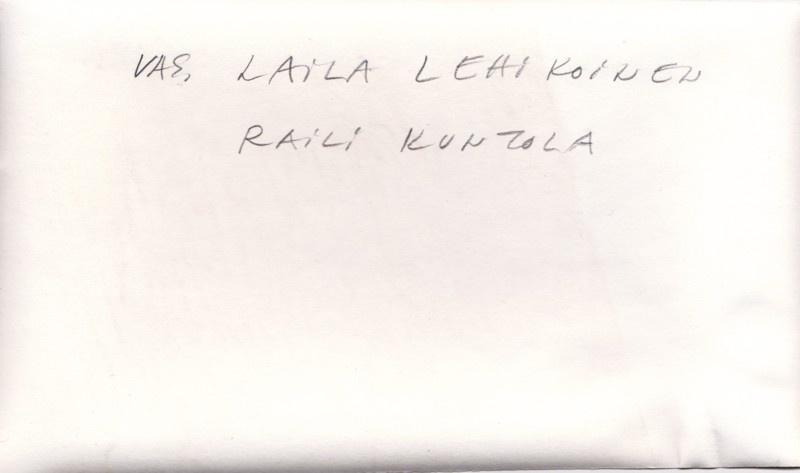 VAS. LAILA LEHIKOINEN
RAILI KUNTOLA